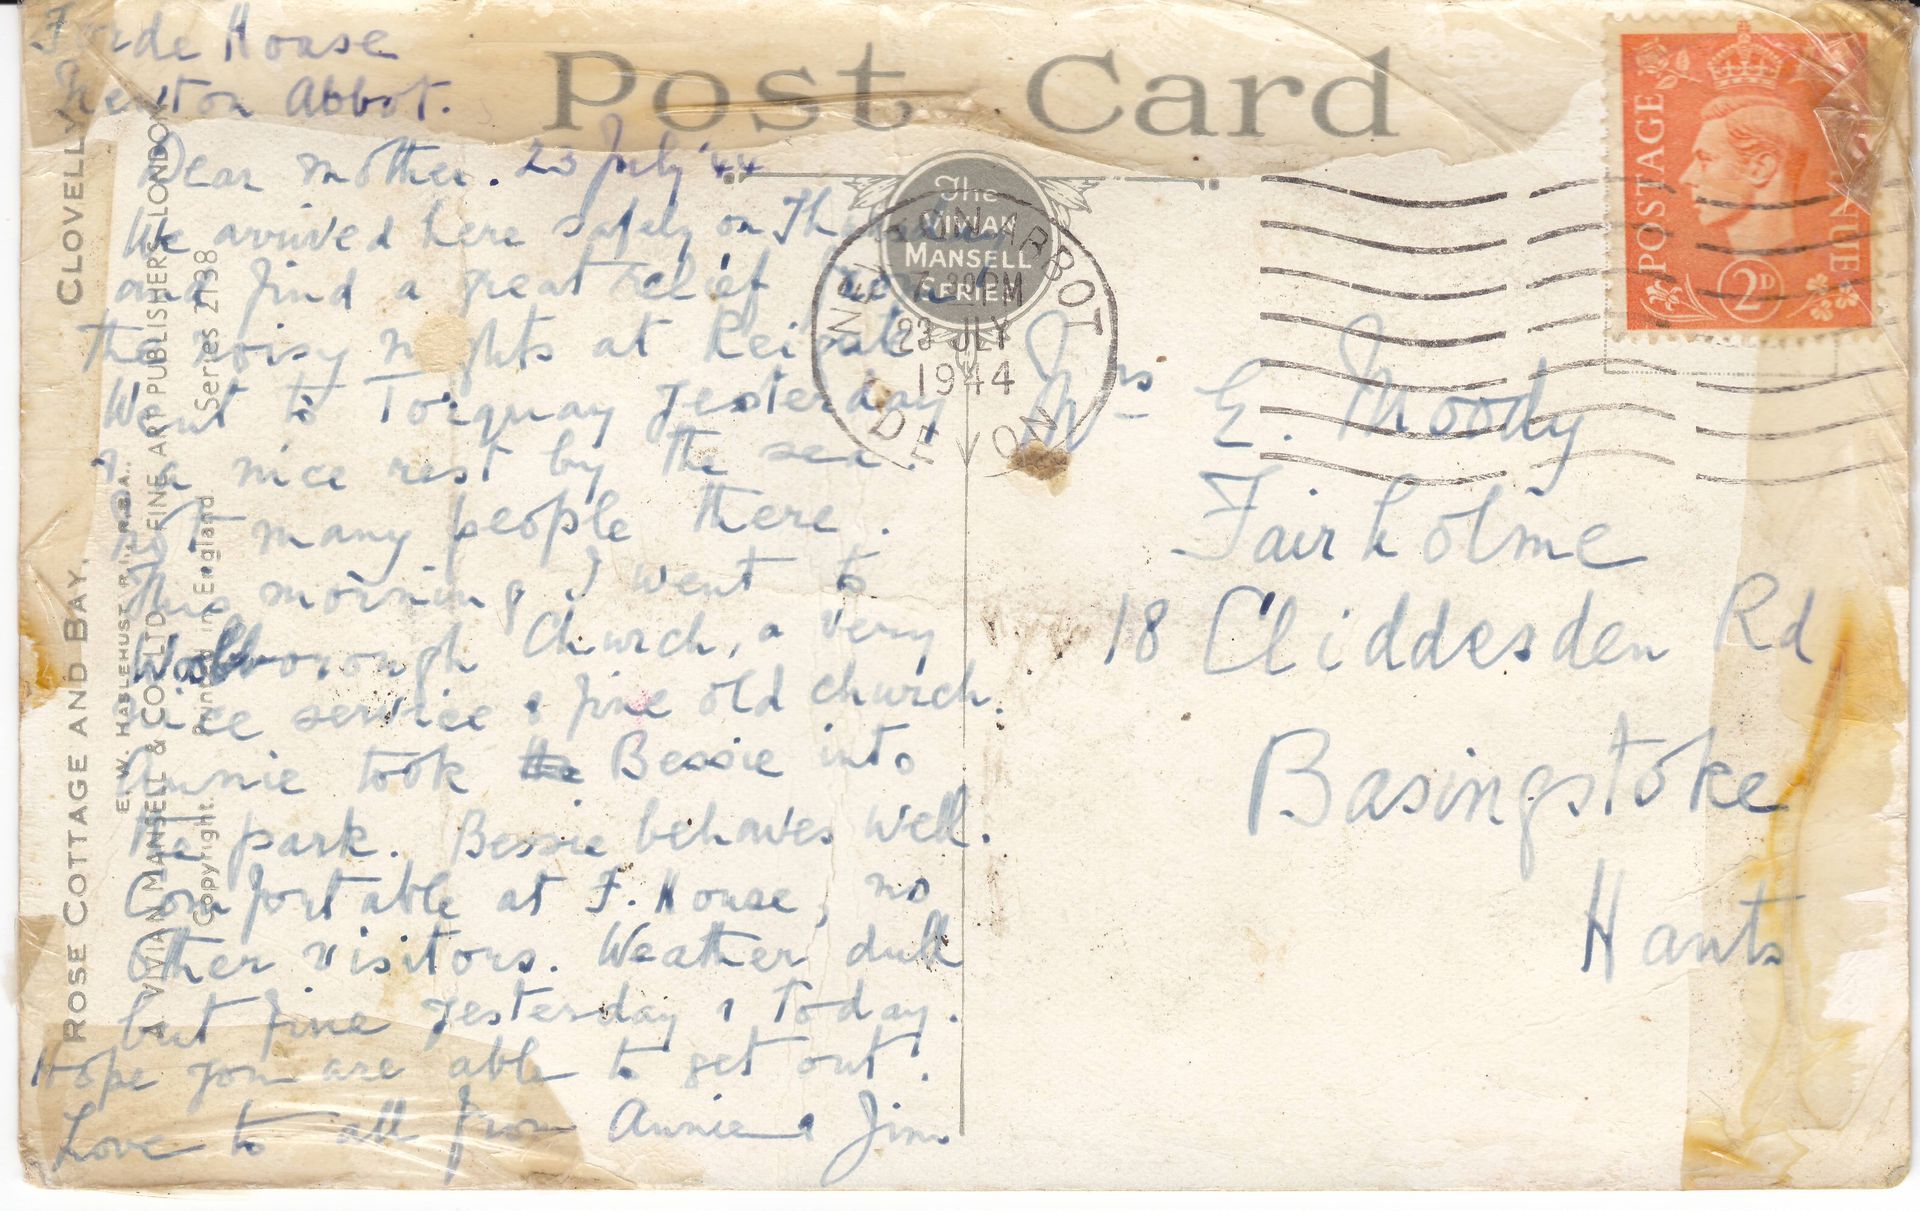 Forde House
Newton Abbot.
Post Card
Dear Mother. 23 July '44
We arrived here safely on Thursday
and find a great relief from
the noisy nights at
Went to Torquay yesterday
& a nice rest by the sea.
Not many people there.
This morning I went to
Wolborough Church, a very
nice service & fine old church.
Annie took Bessie into
the park. Bessie behaves well.
Comfortable at F. House, no
other visitors. Weather dull
but fine yesterday & today.
Hope you are able to get out.
Love to all from Annie & Jim
Mrs E. Moody
Fairholme
18 Cliddesden Rd
Basingstoke
Hants
The
VIVIAN
MANSELL
SERIES
NEWTON ABBOT
7-30PM
23 JLY
1944
DEVON
POSTAGE
REVENUE
2D
CLOVELLY
ROSE COTTAGE AND BAY,
E.W. HASLEHUST, R.I., R.B.A.
A. VIVIAN MANSELL & CO. LTD. FINE ART PUBLISHERS LONDON
Copyright. Printed in England Series 2138